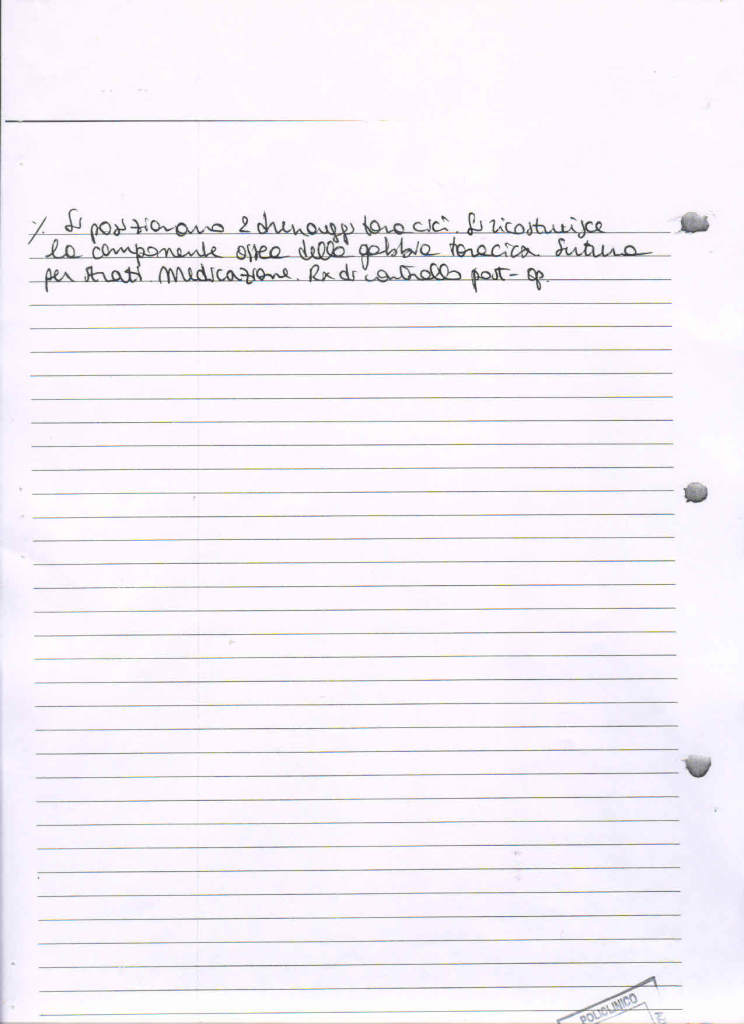 ./. Si posizionano 2 drenaggi toracici. Si ricostruisce
la componente ossea della gabbia toracica Sutura
per strati Medicazione. Rx di controllo post-op.
POLICLINICO